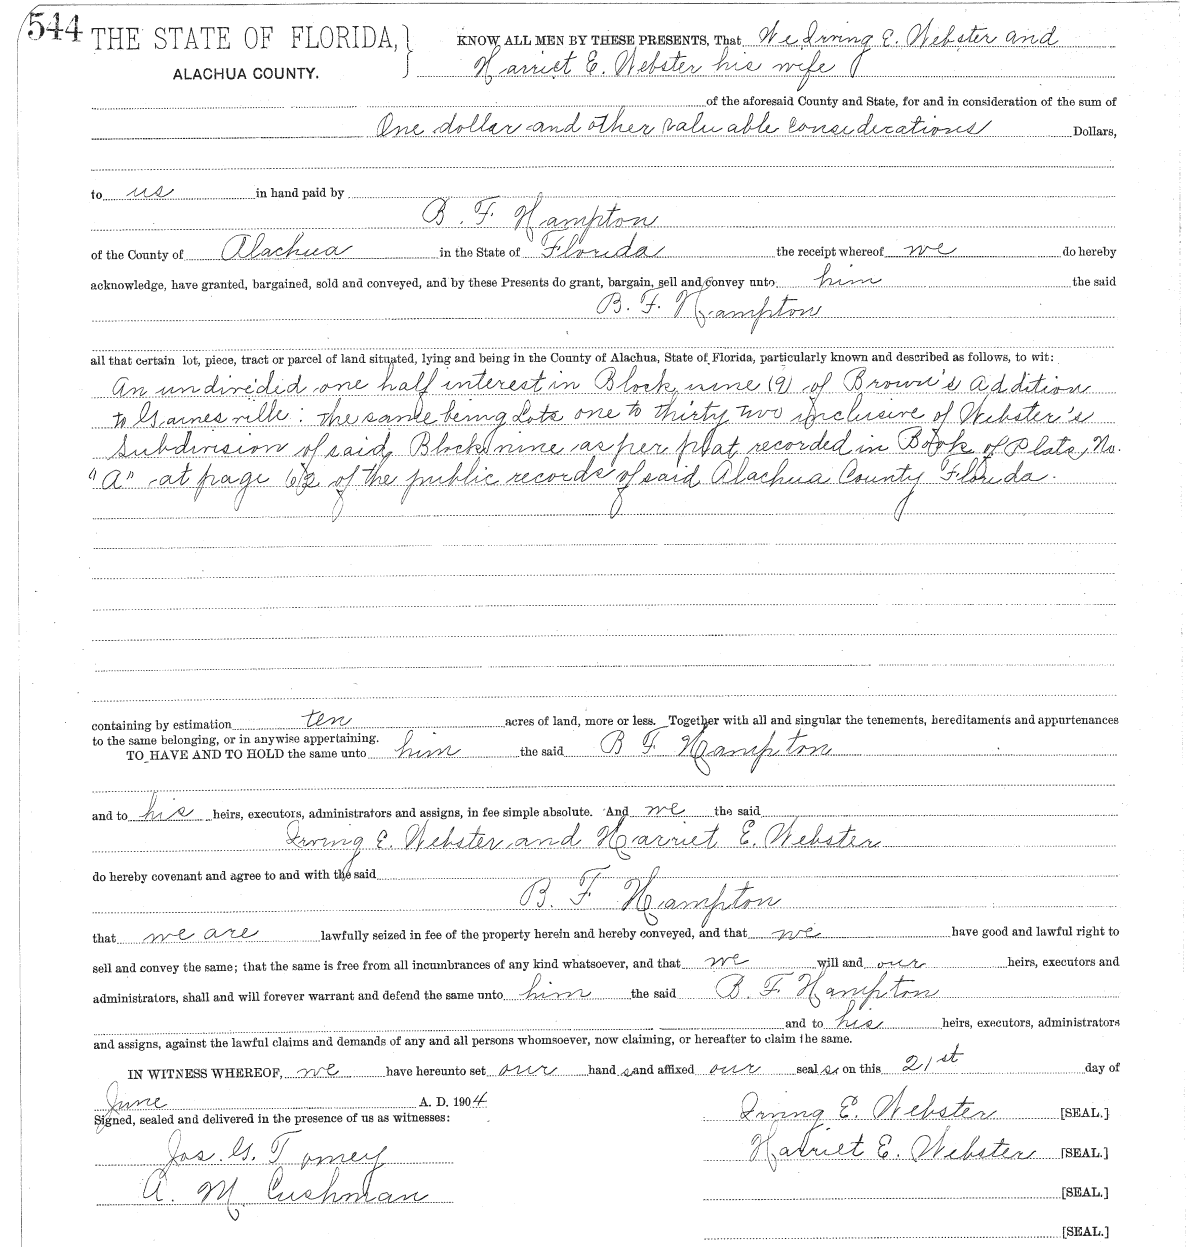 544 THE STATE OF FLORIDA, KNOW ALL MEN BY THESE PRESENTS, That We Irving E. Webster and
ALACHUA COUNTY. Harriet E. Webster his wife
of the aforesaid County and State, for and in consideration of the sum of
One dollar and other valuable considerations Dollars,
to us in hand paid by
B. F. Hampton
of the County of Alachua in the State of Florida the receipt whereof we do hereby
acknowledge, have granted, bargained, sold and conveyed, and by these Presents do grant, bargain, sell and convey unto him the said
B. F. Hampton
all that certain lot, piece, tract or parcel of land situated, lying and being in the County of Alachua, State of Florida, particularly known and described as follows, to wit:
An undivided one half interest in Block nine (9) of Brown's Addition
to Gainesville: the same being Lots one to thirty two inclusive of Webster's
Subdivision of said Block nine as per plat recorded in Book of Plats, No.
"A" at page of the public records of said Alachua County Florida.
containing by estimation ten acres of land, more or less. Together with all and singular the tenements, hereditaments and appurtenances
to the same belonging, or in anywise appertaining.
TO HAVE AND TO HOLD the same unto him the said B F Hampton
and to his heirs, executors, administrators and assigns, in fee simple absolute. And we the said
Irving E. Webster and Harriet E. Webster
do hereby covenant and agree to and with the said
B. F Hampton
that we are lawfully seized in fee of the property herein and hereby conveyed, and that we have good and lawful right to
sell and convey the same; that the same is free from all incumbrances of any kind whatsoever, and that we will and our heirs, executors and
administrators, shall and will forever warrant and defend the same unto him the said B. F. Hampton
and to his heirs, executors, administrators
and assigns, against the lawful claims and demands of any and all persons whomsoever, now claiming, or hereafter to claim the same.
IN WITNESS WHEREOF, we have hereunto set our hand s and affixed our seal s on this 21st day of
June A. D. 1904
Signed, sealed and delivered in the presence of us as witnesses: Irving E. Webster [SEAL.]
Jos. G. Tomey Harriet E. Webster [SEAL.]
A. M. Cushman [SEAL.]
[SEAL.]